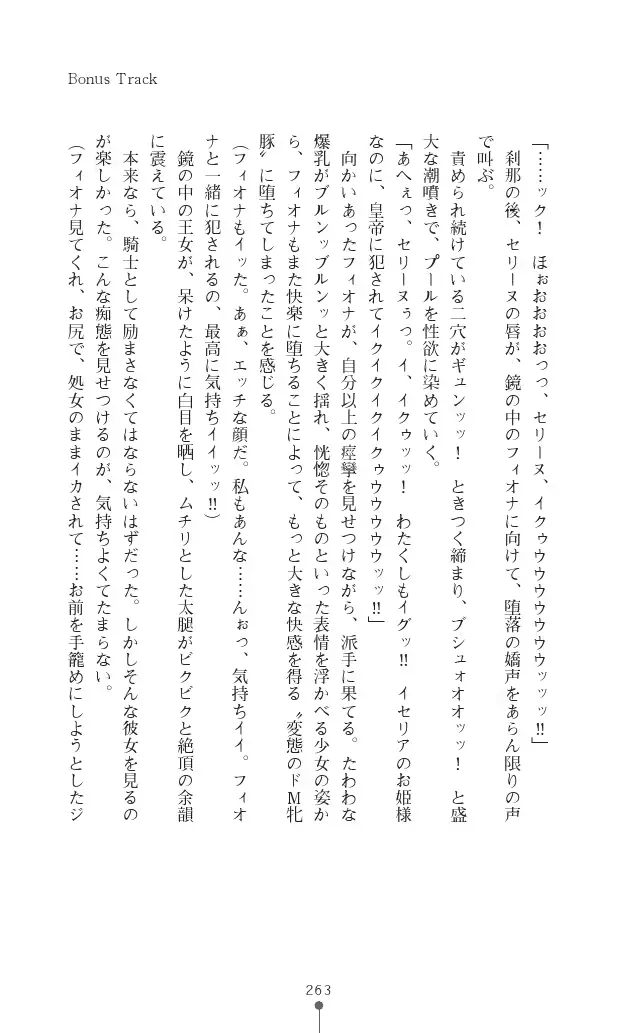 Bonus Track
「……ック！　ほぉおおおおっっ、セリーヌ、イクゥウウウウウウウウッッッ‼」
　刹那の後、セリーヌの唇が、鏡の中のフィオナに向けて、堕落の嬌声をあらん限りの声
で叫ぶ。
　責められ続けている二穴がギュンッッ！　ときつく締まり、ブシュォオオッッ！　と盛
大な潮噴きで、プールを性欲に染めていく。
「あへぇっ、セリーヌぅっ。イ、イクゥッッ！　わたくしもイグッ‼　イセリアのお姫様
なのに、皇帝に犯されてイクイクイクイクゥウウウウウウッッ‼」
　向かいあったフィオナが、自分以上の痙攣を見せつけながら、派手に果てる。たわわな
爆乳がブルンッブルンッと大きく揺れ、恍惚そのものといった表情を浮かべる少女の姿か
ら、フィオナもまた快楽に堕ちることによって、もっと大きな快感を得る〝変態のドＭ牝
豚〟に堕ちてしまったことを感じる。
（フィオナもイッた。あぁ、エッチな顔だ。私もあんな……んぉっ、気持ちイイ。フィオ
ナと一緒に犯されるの、最高に気持ちイイッッ‼）
　鏡の中の王女が、呆けたように白目を晒し、ムチリとした太腿がビクビクと絶頂の余韻
に震えている。
　本来なら、騎士として励まさなくてはならないはずだった。しかしそんな彼女を見るの
が楽しかった。こんな痴態を見せつけるのが、気持ちよくてたまらない。
（フィオナ見てくれ、お尻で、処女のままイカされて……お前を手籠めにしようとしたジ
263